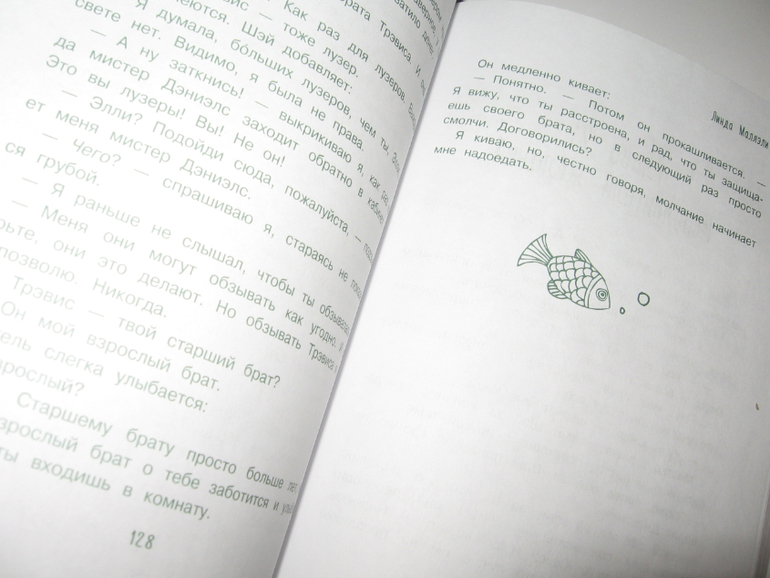 затило денег
брата Трэвиса. И он
Как раз для лузеров. Баш
вис — тоже лузер.
меются. Шэй добавляет:
Я думала, бо́льших лузеров, чем ты, Элли
свете нет. Видимо, я была не права.
— А ну заткнись! — выкрикиваю я, как раз
да мистер Дэниэлс заходит обратно в кабине
Это вы лузеры! Вы! Не он!
— Элли? Подойди сюда, пожалуйста, — подзы
ет меня мистер Дэниэлс.
— Чего? — спрашиваю я, стараясь не пока
ся грубой.
— Я раньше не слышал, чтобы ты обзывал
— Меня они могут обзывать как угодно, и
рьте, они это делают. Но обзывать Трэвиса
позволю. Никогда.
Трэвис — твой старший брат?
Он мой взрослый брат.
тель слегка улыбается:
зрослый?
Старшему брату просто больше лет
зрослый брат о тебе заботится и улы
ты входишь в комнату.
128
Линда Маллэли
Он медленно кивает:
— Понятно. — Потом он прокашливается. —
Я вижу, что ты расстроена, и рад, что ты защища-
ешь своего брата, но в следующий раз просто
смолчи. Договорились?
Я киваю, но, честно говоря, молчание начинает
мне надоедать.